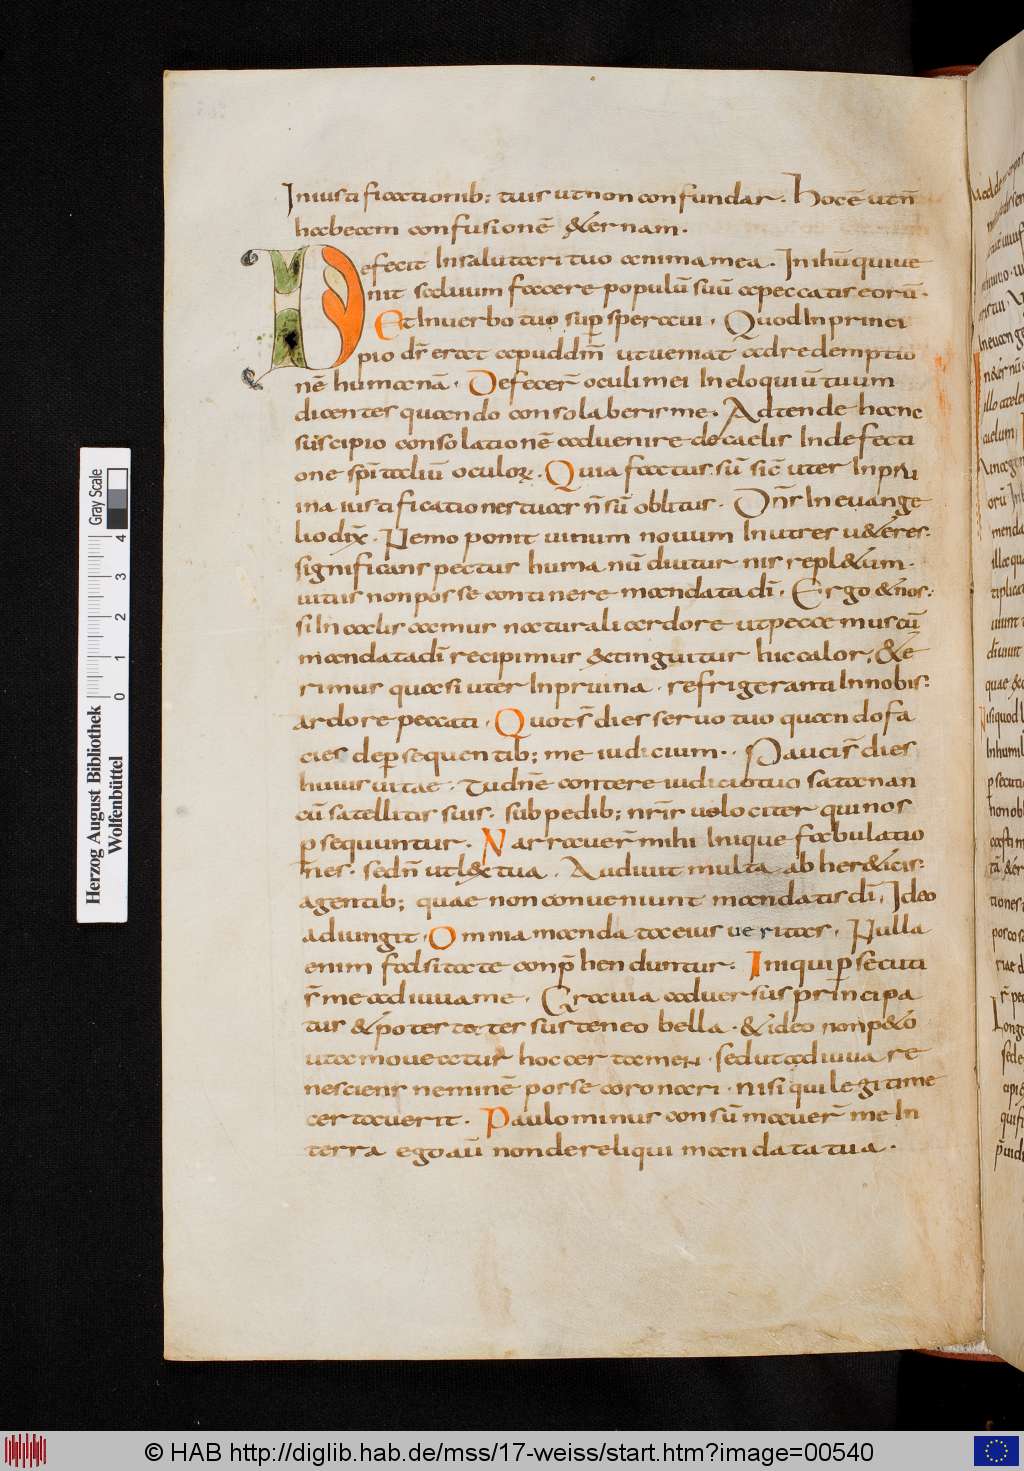 Iniustificationib; tuis utnon confundar. Hocē utn̄
habeam confusionē &ernam.
Defecit Insalutari tuo animamea. Inihū quiue
nit saluum facere populū suū apeccatis eorū.
EtInuerbo tuo suꝑ speraui. Quod Inprinci
pio dr̄ erat apuddm̄ utueniat adredemptio
nē humanā. Defecer̄ oculimei Ineloquiū tuum
dicentes quando consolaberis me. Adtende hanc
suscipio consolationē aduenire decaelis Indefecti
one sp̄i taliū oculoꝝ. Quia factus sū sic̄ uter Inpru
ina iustificationestuas n̄ sū oblitus. Dn̄s In euange
liodix̄. Nemo ponit uinum nouum Inutres u&eres.
significans pectus humanū diuitus nis repl&um.
uitiis nonposse continere mandatadī. Ergo &nos:
siIn aclis amur naturali ardore utpeca mus cū
mandatadī recipimus &tinguitur hic calor, &e
rimus quasi uter Inpruina. refrigeranti Innobis:
ardore peccati. Quots̄ dies seruo tuo quando fa
cies deꝑsequentib; me iudicium.. Paucis̄ dies
huius uitae. tudn̄e contere iudiciotuo satanan
cū satellitis suis. sub pedib; nr̄is uelociter qui nos
ꝑsequuntur. Narrauer̄ mihi Inique fabulatio
nes. sedn̄ utl&tua. Audiuit multa ab her&icis:
agentib; quae non conueniunt mandatis dī. Ideo
adiungit. Omnia manda taeius ueritas. Nulla
enim fadsitate conp̄hen duntur. Iniqui ꝑsecuti
s̄ me adiuuame. Grauia aduersus principa
tus &potes ta tes susteneo bella. &ideo nonp&o
utamoueatur hoc certamen. sedutadiuua re
nesciens neminē posse coronari. nisi quilegitime
certauerit. Paulominus consū mauer̄ me In
terra ego aū nondereliqui mandata tua.
Gray Scale
Herzog August Bibliothek
Wolfenbüttel
0 1 2 3 4
© HAB http://diglib.hab.de/mss/17-weiss/start.htm?image=00540